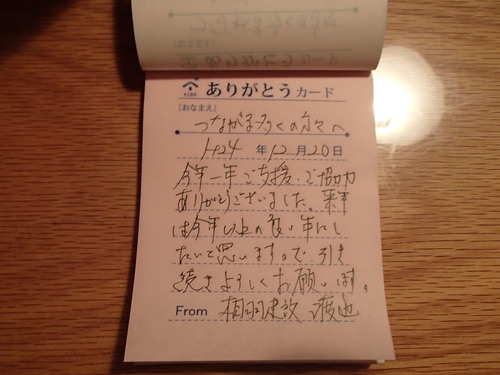 ありがとうカード
[おなまえ]
つながるみんなの会々へ
H24 年12月20日
今年一年ご支援、ご協力
ありがとうございました。来年
は今年以上の良い年にし
たいと思いますので、引き
続きよろしくお願いします。
From 相羽建設 渡辺